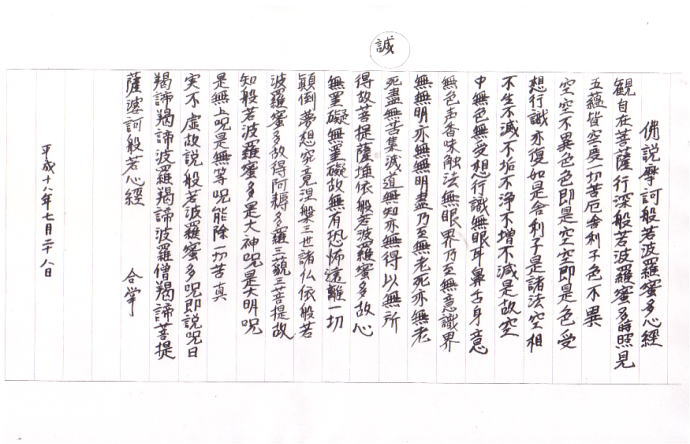 誠
佛説摩訶般若波羅蜜多心經
観自在菩薩行深般若波羅蜜多時照見
五蘊皆空度一切苦厄舎利子色不異
空空不異色色即是空空即是色受
想行識亦復如是舎利子是諸法空相
不生不滅不垢不浄不増不減是故空
中無色無受想行識無眼耳鼻舌身意
無色声香味触法無眼界乃至無意識界
無無明亦無無明盡乃至無老死亦無老
死盡無苦集滅道無知亦無得以無所
得故菩提薩埵依般若波羅蜜多故心
無罣礙無罣礙故無有恐怖遠離一切
顛倒夢想究竟涅槃三世諸仏依般若
波羅蜜多故得阿耨多羅三藐三菩提故
知般若波羅蜜多是大神呪是大明呪
是無上呪是無等呪能除一切苦真
実不虚故説般若波羅蜜多呪即説呪曰
羯諦羯諦波羅羯諦波羅僧羯諦菩提
薩婆訶般若心經 合掌
平成十八年七月二十八日